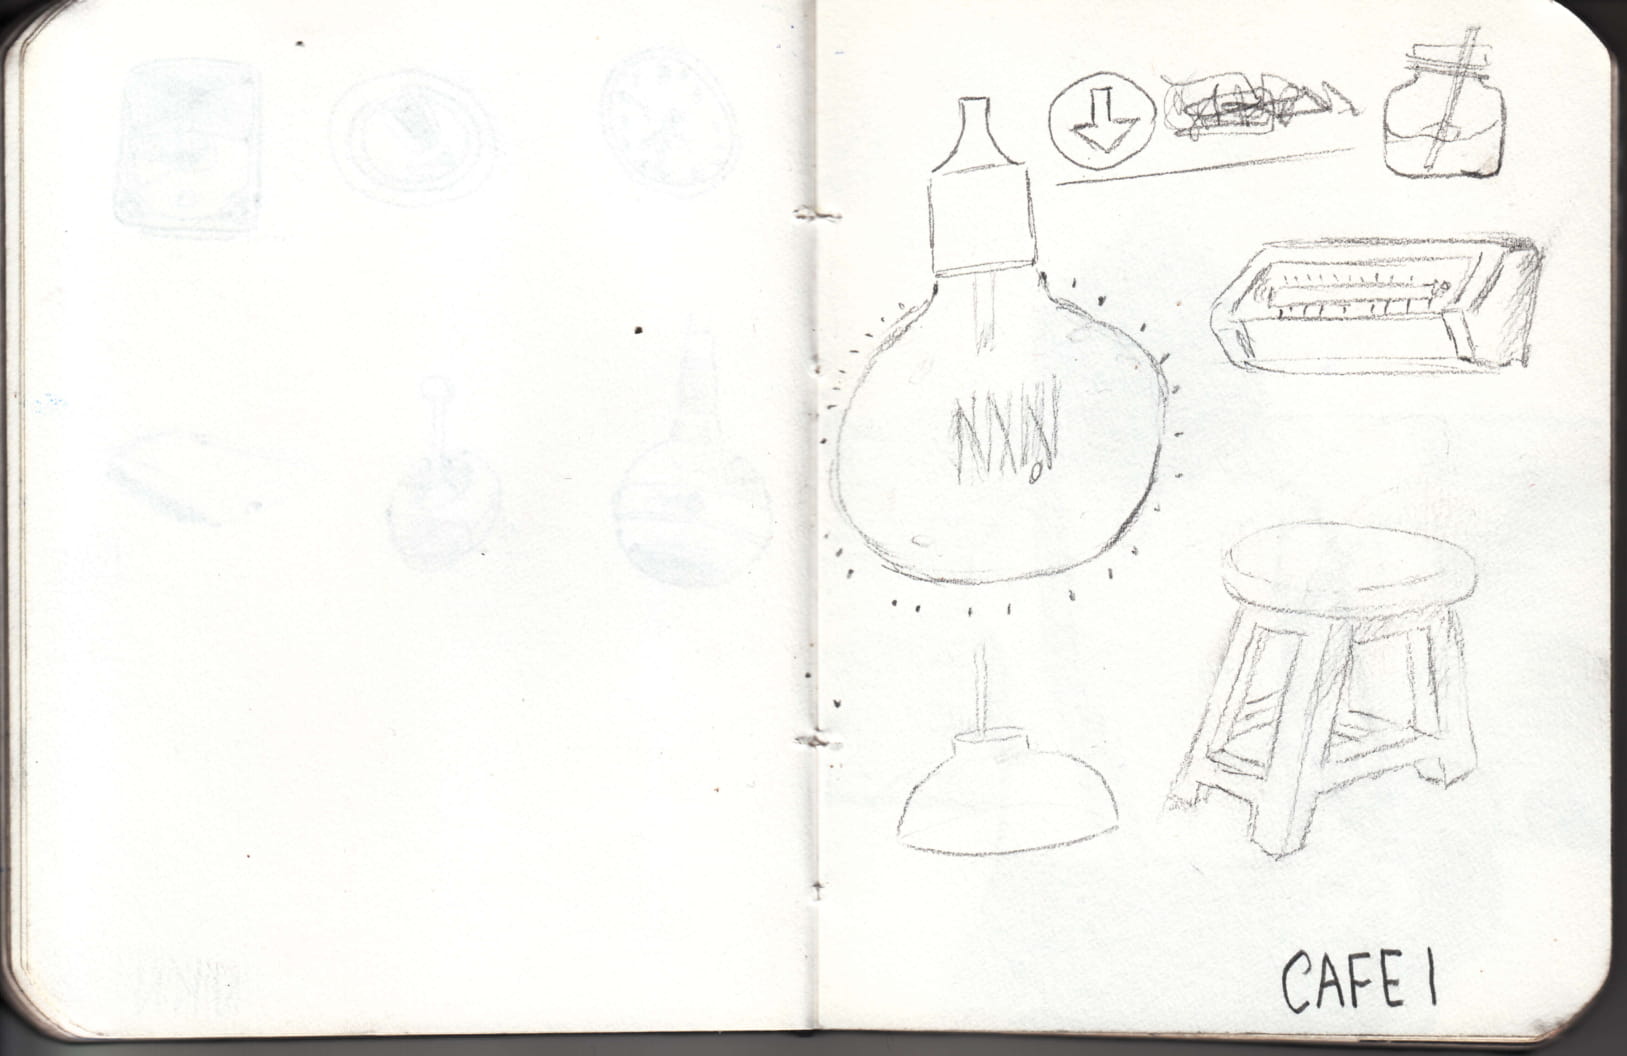 CAFE 1